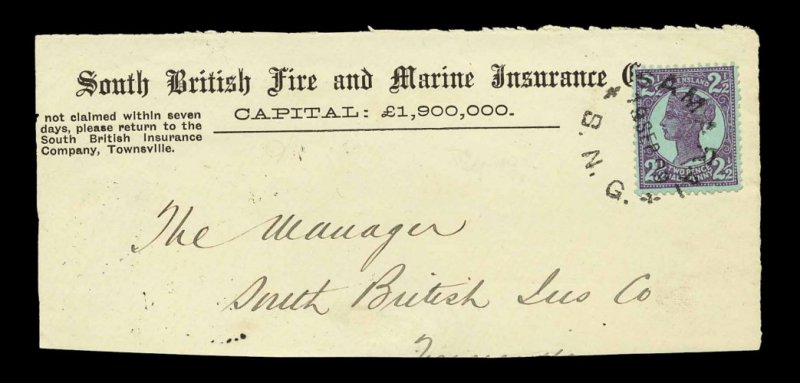 South British Fire and Marine Insurance C
CAPITAL: £1,900,000.
not claimed within seven
days, please return to the
South British Insurance
Company, Townsville.
2½ 2½
2½ 2½
TWO PENCE
HALF PENNY
SAMARAI
B. N. G.
The Manager
South British Ins Co